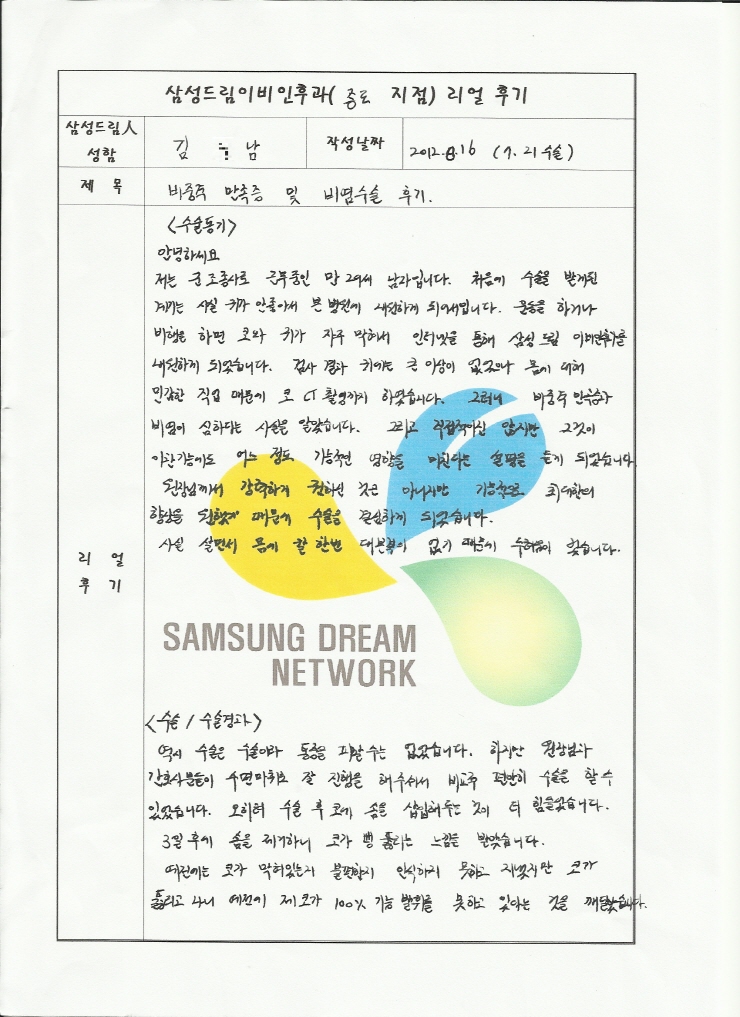 삼성드림이비인후과( 종로 지점) 리얼 후기
삼성드림人 성함
김 남
작성날짜
2012.8.16 (7.21 수술)
제 목
비중격 만곡증 및 비염수술 후기.
리 얼
후 기
<수술동기>
안녕하세요
저는 조종사로 근무중인 만 29세 남자입니다. 처음에 수술을 받게된
계기는 사실 귀가 안좋아서 본 병원에 내원하게 되어서입니다. 운동을 하거나
비행을 하면 코와 귀가 자주 막혀서 인터넷을 통해 삼성드림 이비인후과를
내원하게 되었습니다. 검사 결과 귀에는 큰 이상이 없으나 몸에 대해
민감한 직업 때문에 코 CT 촬영까지 하였습니다. 그러더니 비중격 만곡증과
비염이 심하다는 사실을 알았습니다. 그리고 직접적이진 않지만 그것이
어느 정도 가능하면 영향을 미친다는 설명을 듣게 되었습니다.
원장님께서 강력하게 권하신 것은 아니지만 기능적으로 최대한의
향상을 원했기 때문에 수술을 결심하게 되었습니다.
사실 살면서 몸에 칼 한번 대본적이 없기 때문에 했습니다.
SAMSUNG DREAM
NETWORK
<수술 / 수술경과>
역시 수술은 수술이라 통증을 피할 수는 없었습니다. 하지만 원장님과
간호사분들이 수면마취로 잘 진행을 해주셔서 비교적 편안히 수술을 할 수
있었습니다. 오히려 수술 후 코에 솜을 삽입해두는 것이 더 힘들었습니다.
3일 후에 솜을 제거하니 코가 뻥 뚫리는 느낌을 받았습니다.
예전에는 코가 막혀있는지 불편한지 인식하지 못하고 지냈지만 코가
뚫리고 나니 예전에 제 코가 100% 기능 발휘를 못하고 있다는 것을 깨달았습니다.